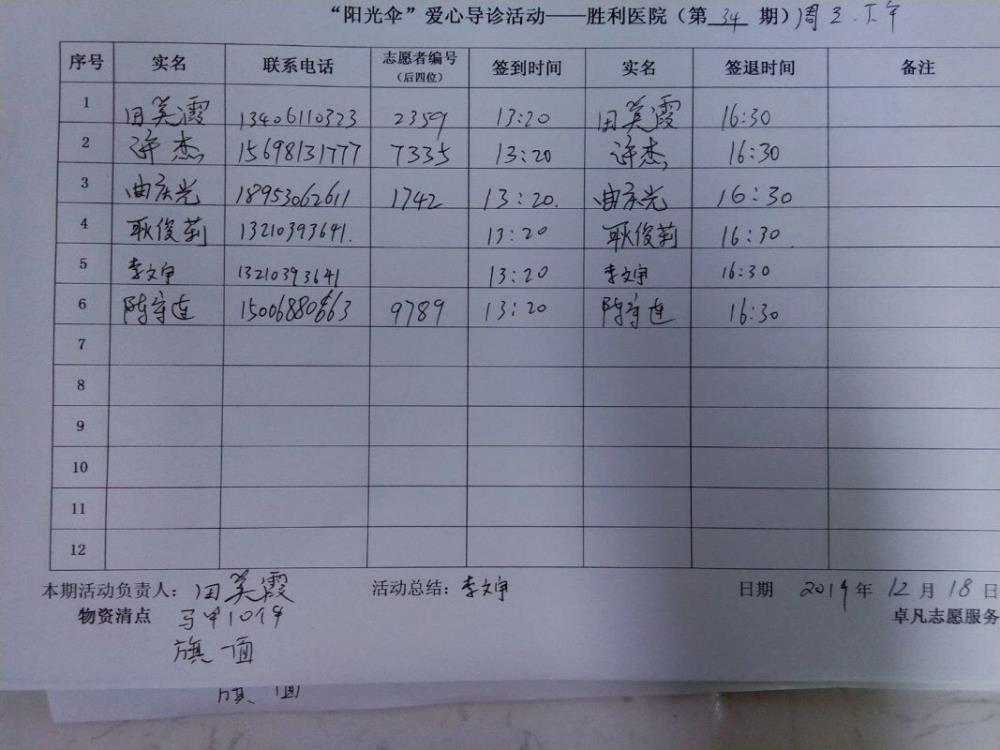 “阳光伞”爱心导诊活动——胜利医院（第 34 期）周三.下午
序号 实名 联系电话 志愿者编号（后四位） 签到时间 实名 签退时间 备注
1 田美霞 13406110323 2359 13:20 田美霞 16:30
2 许杰 15698131777 7335 13:20 许杰 16:30
3 曲庆光 18953062611 1742 13:20. 曲庆光 16:30
4 耿俊莉 13210393641. 13:20 耿俊莉 16:30.
5 李文 13210393641 13:20 李文 16:30
6 陈守连 15006880663 9789 13:20 陈守连 16:30
7
8
9
10
11
12
本期活动负责人：田美霞 活动总结：李文 日期 2019年12月18日
物资清点 马甲10件 卓凡志愿服务
旗一面
旗 面